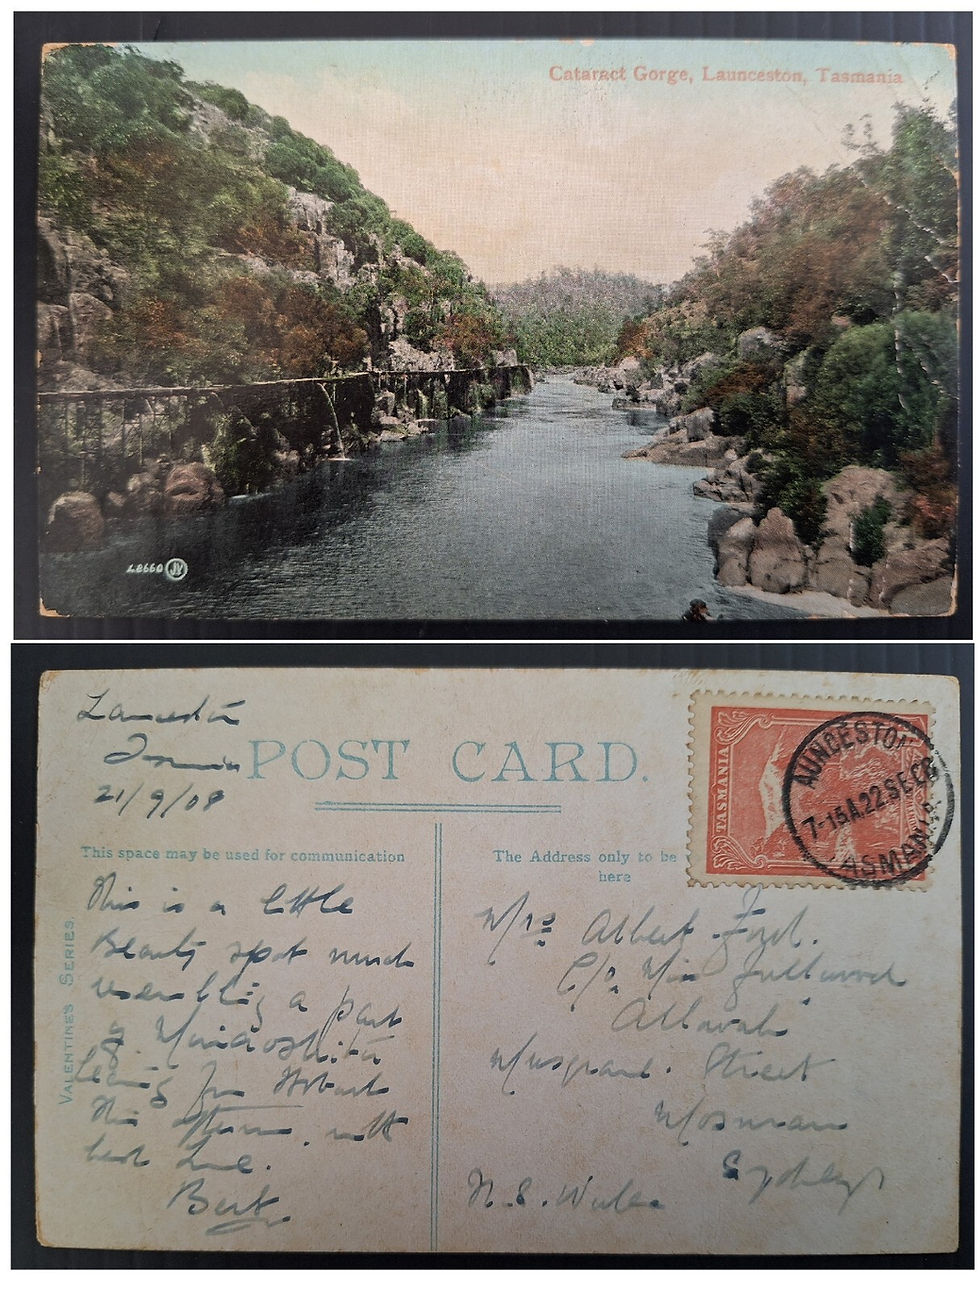 Cataract Gorge, Launceston, Tasmania
48660 JV
Launceston
21/9/08
POST CARD.
This space may be used for communication
The Address only to be
here
VALENTINE'S SERIES.
TASMANIA
AUNCESTON
7-15A 22 SE 08
TASMANIA
This is a little
Beauty spot much
resembling a part
of
leaving for Hobart
this afternoon. with
best love.
Bert
Mrs Albert Ford.
C/o Miss Fullwood
Allawah
Musgrave Street
Mosman
Sydney
N. S. Wales